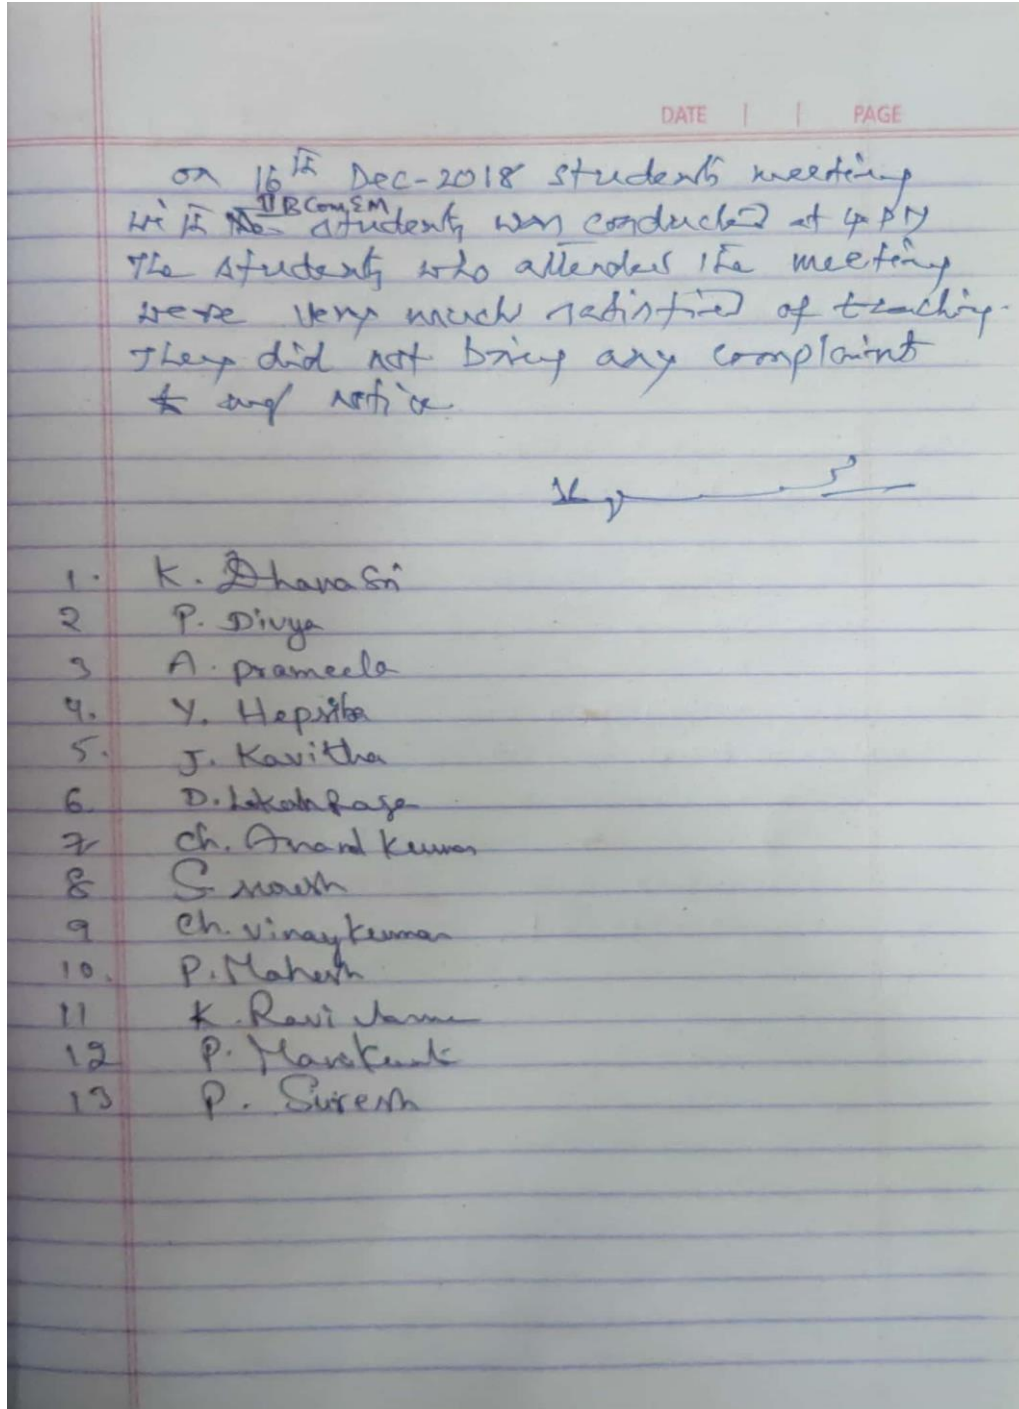 DATE | | PAGE
on 16th Dec-2018 students meeting
II B Com EM
with students was conducted at 4 PM
The students who attended the meeting
were very much satisfied of teaching.
They did not bring any complaint
to my notice
1. K. Dhana Sri
2 P. Divya
3 A. Prameela
4. Y. Hepsiba
5. J. Kavitha
6. D.
7 Ch. Anand Kumar
8 S
9 Ch. Vinay Kumar
10. P. Mahesh
11 K. Ravi
12 P.
13 P. Suresh